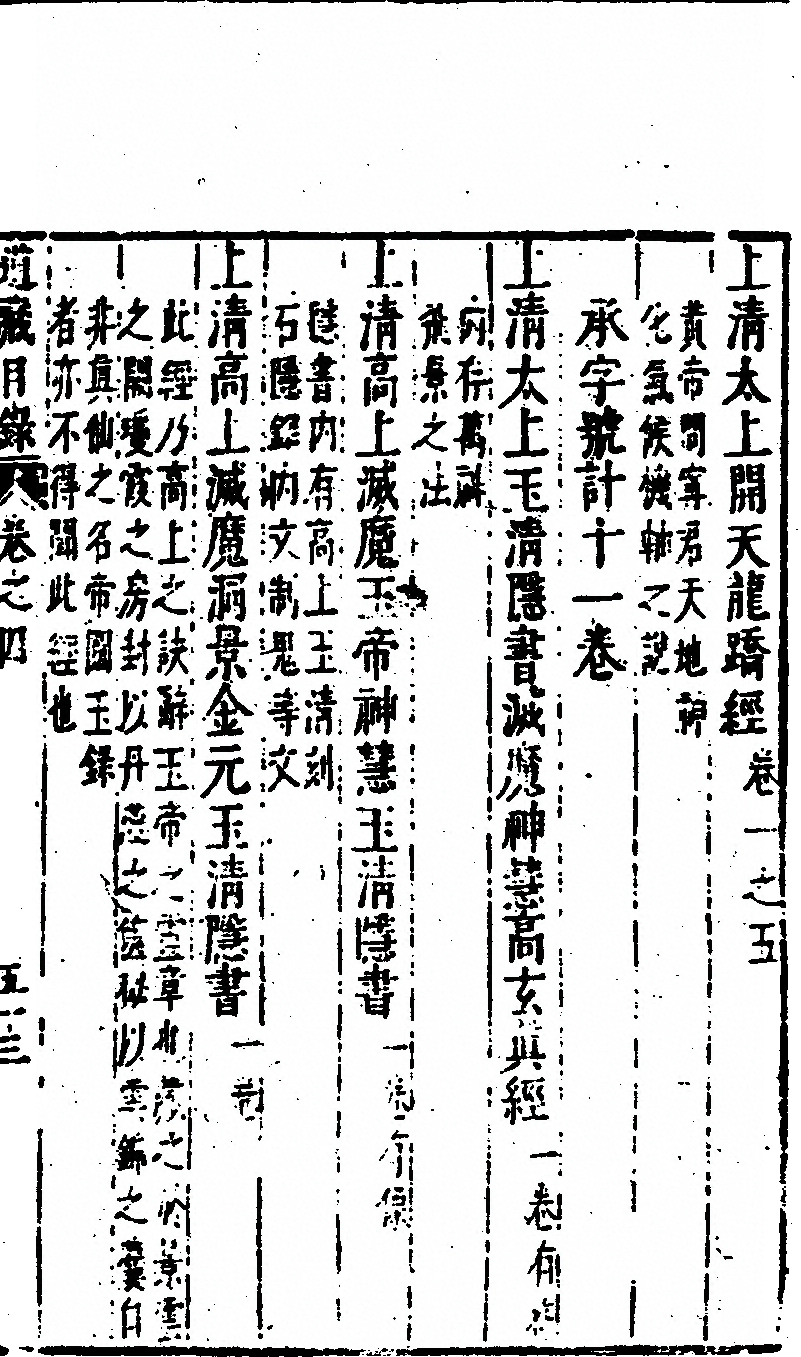 上清太上開天龍蹻經卷一之五
黃帝問寗君天地神
化氣候機軸之說
承字號計十一卷
上清太上玉清隱書滅魔神慧高玄真經一卷有符
内存萬神
飛景之法
上清高上滅魔玉帝神慧玉清隱書一卷有像
隱書内有高上玉清刻
石隱銘内文制鬼等文
上清高上滅魔洞景金元玉清隱書一卷
此經乃高上之訣辭玉帝之靈章也藏之於景雲
之闕瓊霞之房封以丹蕊之笈秘以雲錦之囊自
非真仙之名帝圖玉錄
者亦不得聞此經也
道藏目錄卷之四 五十三